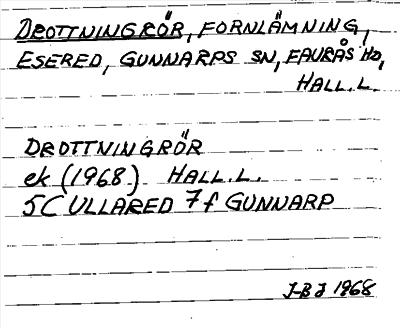 DROTTNINGRÖR, FORNLÄMNING,
ESERED, GUNNARPS SN, FAURÅS HD,
HALL.L.
DROTTNINGRÖR
ek (1968) HALL.L.
5C ULLARED 7f GUNNARP
J-BJ 1968